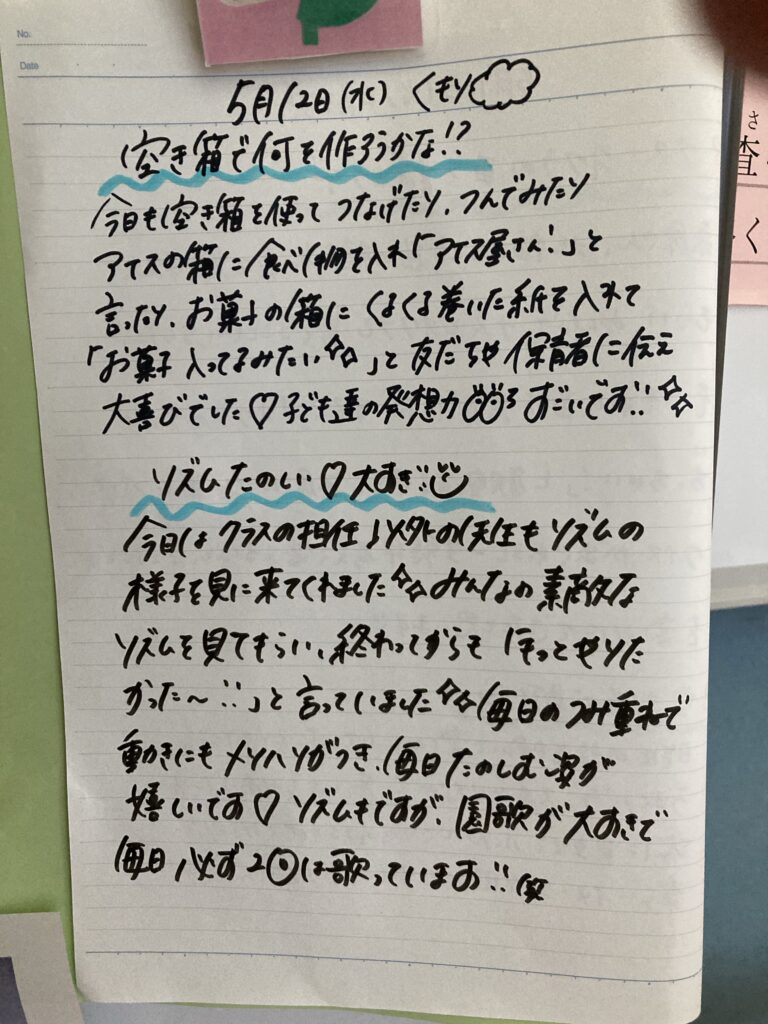 No.
Date
5月12日(水) くもり
空き箱で何を作ろうかな!?
今日も空き箱を使って つなげたり、つんでみたり
アイスの箱に食べ物を入れ「アイス屋さん!」と
言ったり、お菓子の箱に くるくる巻いた紙を入れて
「お菓子 入ってるみたい☆☆」と 友だちや 保育者に伝え
大喜びでした♡子ども達の発想力 すごいです!!☆☆
リズムたのしい♡大すき!!
今日は クラスの担任以外の先生も リズムの
様子を見に来てくれました☆☆みんなの 素敵な
リズムを見てもらい、終わってからも「もっとやりた
かった〜!!」と 言っていました☆☆毎日の つみ重ねで
動きにも メリハリがつき、毎日 たのしむ 姿が
嬉しいです♡ リズムもですが、園歌が 大すきで
毎日 必ず 2回は歌っています!!(笑
さ
査
く